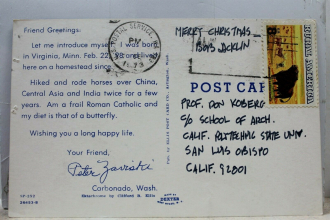 Friend Greetings:
Let me introduce myself. I was born
in Virginia, Minn. Feb. 22,
here on a homestead since
Hiked and rode horses over China,
Central Asia and India twice for a few
years. Am a frail Roman Catholic and
my diet is that of a butterfly.
Wishing you a long happy life.
Your Friend,
Peter Zavriski
Carbonado, Wash.
DEXTER
POSTAL SERVICE
PM
MERRY CHRISTMAS
POST CARD
PROF. DON KOBERG
c/o SCHOOL OF ARCH.
CALIF. POLYTECHNIC STATE UNIV.
SAN LUIS OBISPO
CALIF.
8